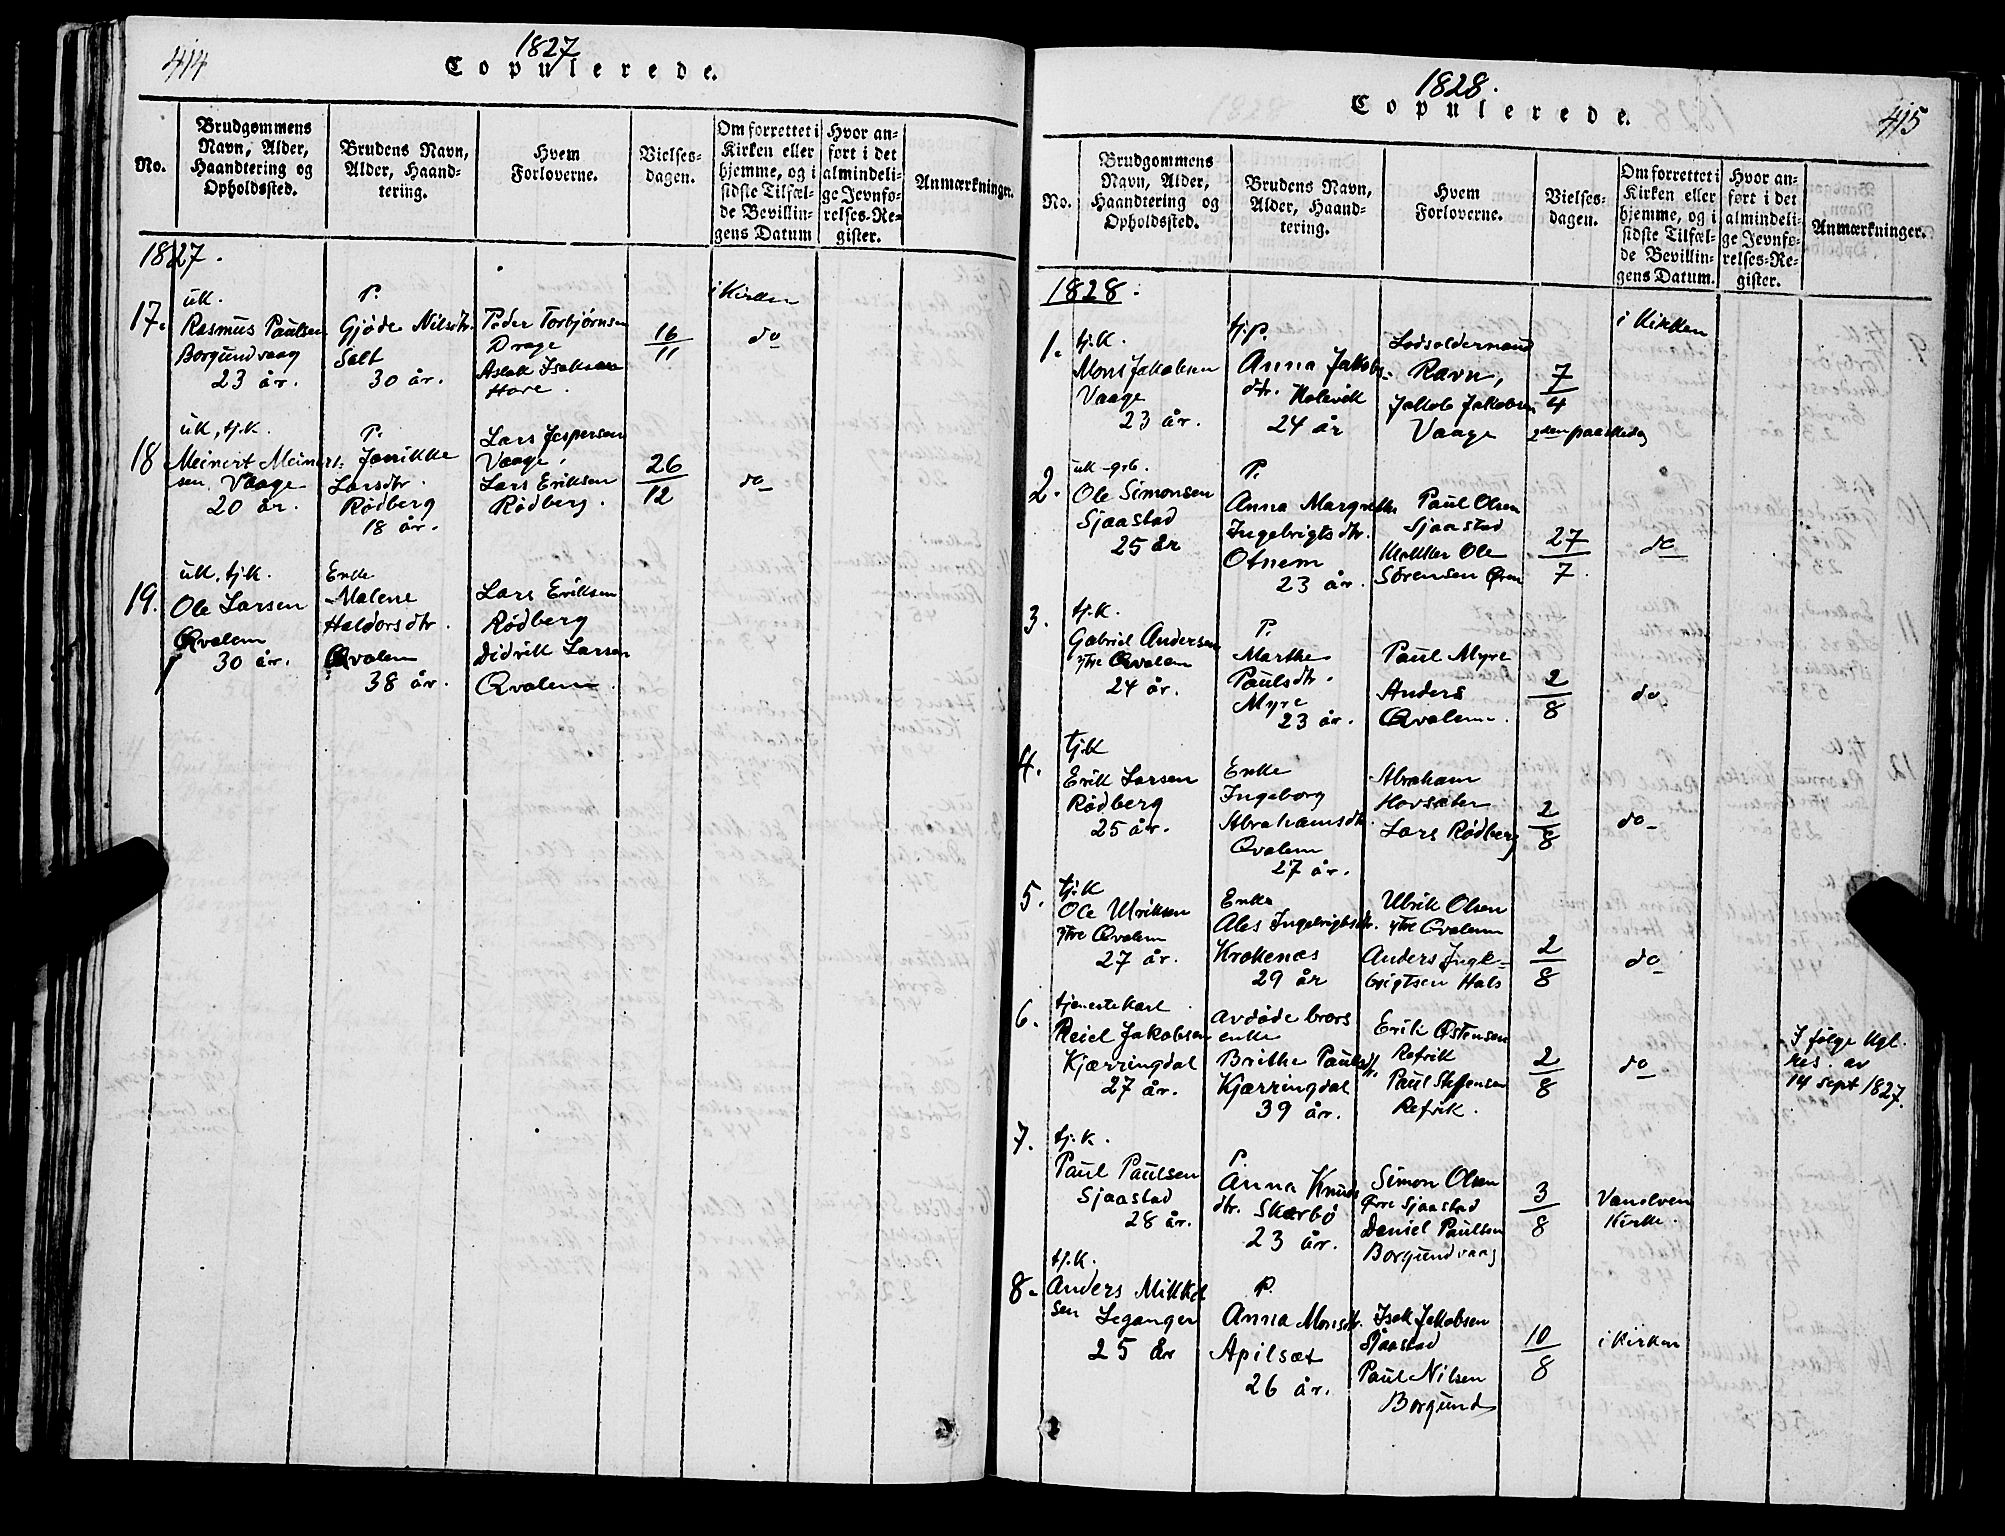 414
1827
Copulerede.
No.
Brudgommens
Navn, Alder,
Haandtering og
Opholdssted.
Brudens Navn,
Alder, Haand-
tering.
Hvem
Forloverne.
Vielses-
dagen.
Om forrettet i
Kirken eller
hjemme, og i
sidste Tilfæl-
de Bevillin-
gens Datum
Hvor an-
ført i det
almindeli-
ge Jevnfø-
relses-Re-
gister.
Anmærkninger.
1827.
17.
uk.
Rasmus Paulsen
Borgundvaag
23 år.
P.
Gjøde Nilsdtr.
Salt
30 år.
Peder Torbjørnsen
Drage
Aslak Isaksen
Hove.
16
11
i Kirken
do
18
uk, tj.k.
Meinert Meiners-
sen, Vaage
20 år.
P.
Janikke
Larsdtr.
Rødberg
18 år.
Lars Jespersen
Vaage,
Lars Eriksen
Rødberg.
26
12
do
19.
uk, tj.k.
Ole Larsen
Qvalem
30 år.
Enke
Malene
Haldorsdtr.
Qvalem
38 år.
Lars Eriksen
Rødberg
Didrik Larsen
Qvalem.
1828.
Copulerede.
415
No.
Brudgommens
Navn, Alder,
Haandtering og
Opholdssted.
Brudens Navn,
Alder, Haand-
tering.
Hvem
Forloverne.
Vielses-
dagen.
Om forrettet i
Kirken eller
hjemme, og i
sidste Tilfæl-
de Bevillin-
gens Datum.
Hvor an-
ført i det
almindeli-
ge Jevnfø-
relses-Re-
gister.
Anmærkninger.
1828.
1.
tj.k.
Mons Jakobsen
Vaage
23 år.
tj.p.
Anna Jakobs-
dtr. Holevik
24 år
Lodsoldermand
Ravn,
Jakob Jakobsen
Vaage
7
4
2den paaskedag
i Kirken
2.
uk - grb.
Ole Simonsen
Sjaastad
25 år
P.
Anna Margrethe
Ingebrigtsdtr.
Otnem
23 år.
Paul Olsen
Sjaastad
Klokker Ole
Sørensen Øren
27
7.
do
3.
tj.k.
Gabriel Andersen
ytre Qvalem
24 år.
P.
Marthe
Paulsdtr.
Myre
23 år.
Paul Myre
Anders
Qvalem.
2
8
do
4.
tj.k
Erik Larsen
Rødberg
25 år.
Enke
Ingeborg
Abrahamsdtr.
Qvalem
27 år.
Abraham
Hovsæter
Lars Rødberg
2
8
do
5.
tj.k
Ole Ulriksen
ytre Qvalem
27 år.
Enke
Ales Ingebrigtsdtr.
Krokenæs
29 år
Ulrik Olsen
ytre Qvalem
Anders Inge-
brigtsen Hals
2
8
do
6.
tjenestekarl
Reiel Jakobsen
Kjærringdal
27 år.
Avdøde brors
enke
Brithe Paulsdtr.
Kjærringdal
39 år.
Erik Østensen
Refvik
Paul Steffensen
Refvik.
2
8
do
I følge Kgl.
res. av
14 sept 1827.
7.
tj.k.
Paul Paulsen
Sjaastad
28 år.
P.
Anna Knuds
dtr. Skarbø
23 år.
Simon Olsen
Øvre Sjaastad
Daniel Paulsen
Borgundvaag
3
8
Vanelven
Kirke.
8.
tj.k.
Anders Mikkel
sen Leganger
25 år
P.
Anna Monsdtr.
Apilsæt
26 år.
Isak Jakobsen
Sjaastad
Paul Nilsen
Borgund
10
8
i kirken